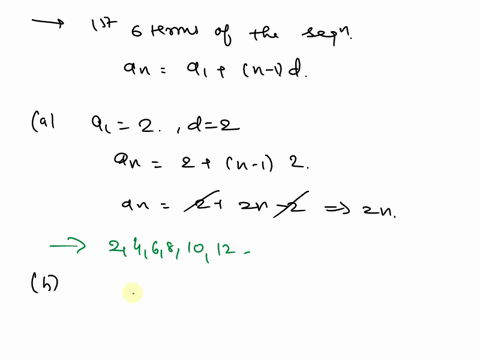 → 1st 6 terms of the seqn.
an = a1 + (n-1) d.
(a) a1 = 2. , d=2
an = 2 + (n-1) 2.
an = 2 + 2n - 2 ⇒ 2n.
→ 2, 4, 6, 8, 10, 12 -
(b)